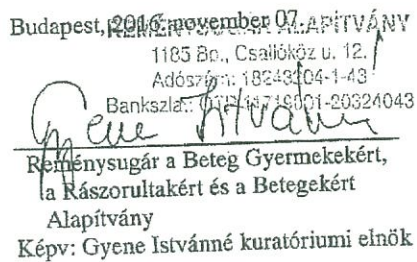 Budapest, 2016. november 07.
REMÉNYSUGÁR ALAPÍTVÁNY
1185 Bp., Csallóköz u. 12.
Adószám: 18243204-1-43
Bankszla.: 11718001-20324043
Gyene Istvánné
Reménysugár a Beteg Gyermekekért,
a Rászorultakért és a Betegekért
Alapítvány
Képv: Gyene Istvánné kuratóriumi elnök